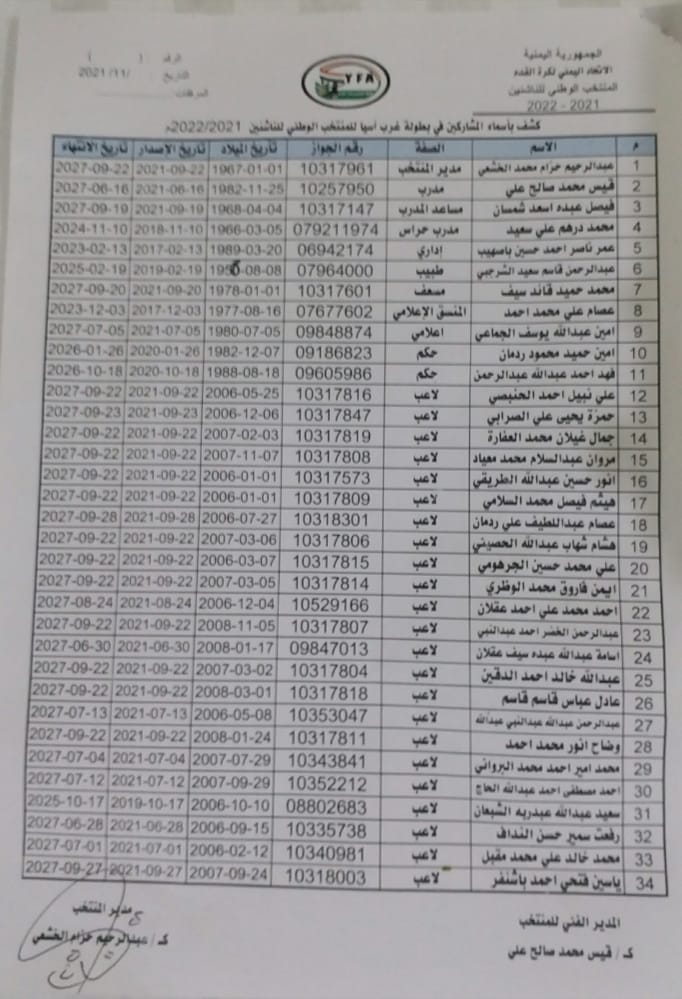 الجمهورية اليمنية
الاتحاد اليمني لكرة القدم
المنتخب الوطني للناشئين
2021 - 2022
الرقم: ( )
التاريخ: /11/ 2021
المرفقات:
YFA
كشف بأسماء المشاركين في بطولة غرب آسيا للمنتخب الوطني للناشئين 2022/2021م
م الاسم الصفة رقم الجواز تاريخ الميلاد تاريخ الإصدار تاريخ الانتهاء
1 عبدالرحيم حزام محمد الخشعي مدير المنتخب 10317961 1967-01-01 2021-09-22 2027-09-22
2 قيس محمد صالح علي مدرب 10257950 1982-11-25 2021-06-16 2027-06-16
3 فيصل عبده اسعد شمسان مساعد المدرب 10317147 1968-04-04 2021-09-19 2027-09-19
4 محمد درهم علي سعيد مدرب حراس 079211974 1966-03-05 2018-11-10 2024-11-10
5 عمر ناصر احمد حسين باصهيب إداري 06942174 1989-03-20 2017-02-13 2023-02-13
6 عبدالرحمن قاسم سعيد الشرجبي طبيب 07964000 08-08 2019-02-19 2025-02-19
7 محمد حميد قائد سيف مسعف 10317601 1978-01-01 2021-09-20 2027-09-20
8 عصام علي محمد احمد المنسق الإعلامي 07677602 1977-08-16 2017-12-03 2023-12-03
9 امين عبدالله يوسف الجماعي اعلامي 09848874 1980-07-05 2021-07-05 2027-07-05
10 امين حميد محمود ردمان حكم 09186823 1982-12-07 2020-01-26 2026-01-26
11 فهد احمد عبدالله عبدالرحمن حكم 09605986 1988-08-18 2020-10-18 2026-10-18
12 علي نبيل احمد الحنبصي لاعب 10317816 2006-05-25 2021-09-22 2027-09-22
13 حمزة يحيى علي الصرابي لاعب 10317847 2006-12-06 2021-09-23 2027-09-23
14 جمال غيلان محمد العفارة لاعب 10317819 2007-02-03 2021-09-22 2027-09-22
15 مروان عبدالسلام محمد معياد لاعب 10317808 2007-11-07 2021-09-22 2027-09-22
16 انور حسين عبدالله الطريقي لاعب 10317573 2006-01-01 2021-09-22 2027-09-22
17 هيثم فيصل محمد السلامي لاعب 10317809 2006-01-01 2021-09-22 2027-09-22
18 عصام عبداللطيف علي ردمان لاعب 10318301 2006-07-27 2021-09-28 2027-09-28
19 هشام شهاب عبدالله الحصيني لاعب 10317806 2007-03-06 2021-09-22 2027-09-22
20 علي محمد حسين الجرهومي لاعب 10317815 2006-03-07 2021-09-22 2027-09-22
21 ايمن فاروق محمد الوظري لاعب 10317814 2007-03-05 2021-09-22 2027-09-22
22 احمد محمد علي احمد عقلان لاعب 10529166 2006-12-04 2021-08-24 2027-08-24
23 عبدالرحمن الخضر احمد عبدالنبي لاعب 10317807 2008-11-05 2021-09-22 2027-09-22
24 اسامة عبدالله عبده سيف عقلان لاعب 09847013 2008-01-17 2021-06-30 2027-06-30
25 عبدالله خالد احمد الدقين لاعب 10317804 2007-03-02 2021-09-22 2027-09-22
26 عادل عباس قاسم قاسم لاعب 10317818 2008-03-01 2021-09-22 2027-09-22
27 عبدالرحمن عبدالله عبدالنبي عبدالله لاعب 10353047 2006-05-08 2021-07-13 2027-07-13
28 وضاح انور محمد احمد لاعب 10317811 2008-01-24 2021-09-22 2027-09-22
29 محمد امير احمد محمد البرواني لاعب 10343841 2007-07-29 2021-07-04 2027-07-04
30 احمد مصطفى احمد عبدالله الحاج لاعب 10352212 2007-09-29 2021-07-12 2027-07-12
31 سعيد عبدالله عبدربه الشبعان لاعب 08802683 2006-10-10 2019-10-17 2025-10-17
32 رفعت سمير حسن النداف لاعب 10335738 2006-09-15 2021-06-28 2027-06-28
33 محمد خالد علي محمد مقبل لاعب 10340981 2006-02-12 2021-07-01 2027-07-01
34 ياسين فتحي احمد باشنفر لاعب 10318003 2007-09-24 2021-09-27 2027-09-27
المدير الفني للمنتخب
كـ / قيس محمد صالح علي
مدير المنتخب
كـ / عبدالرحيم حزام الخشعي